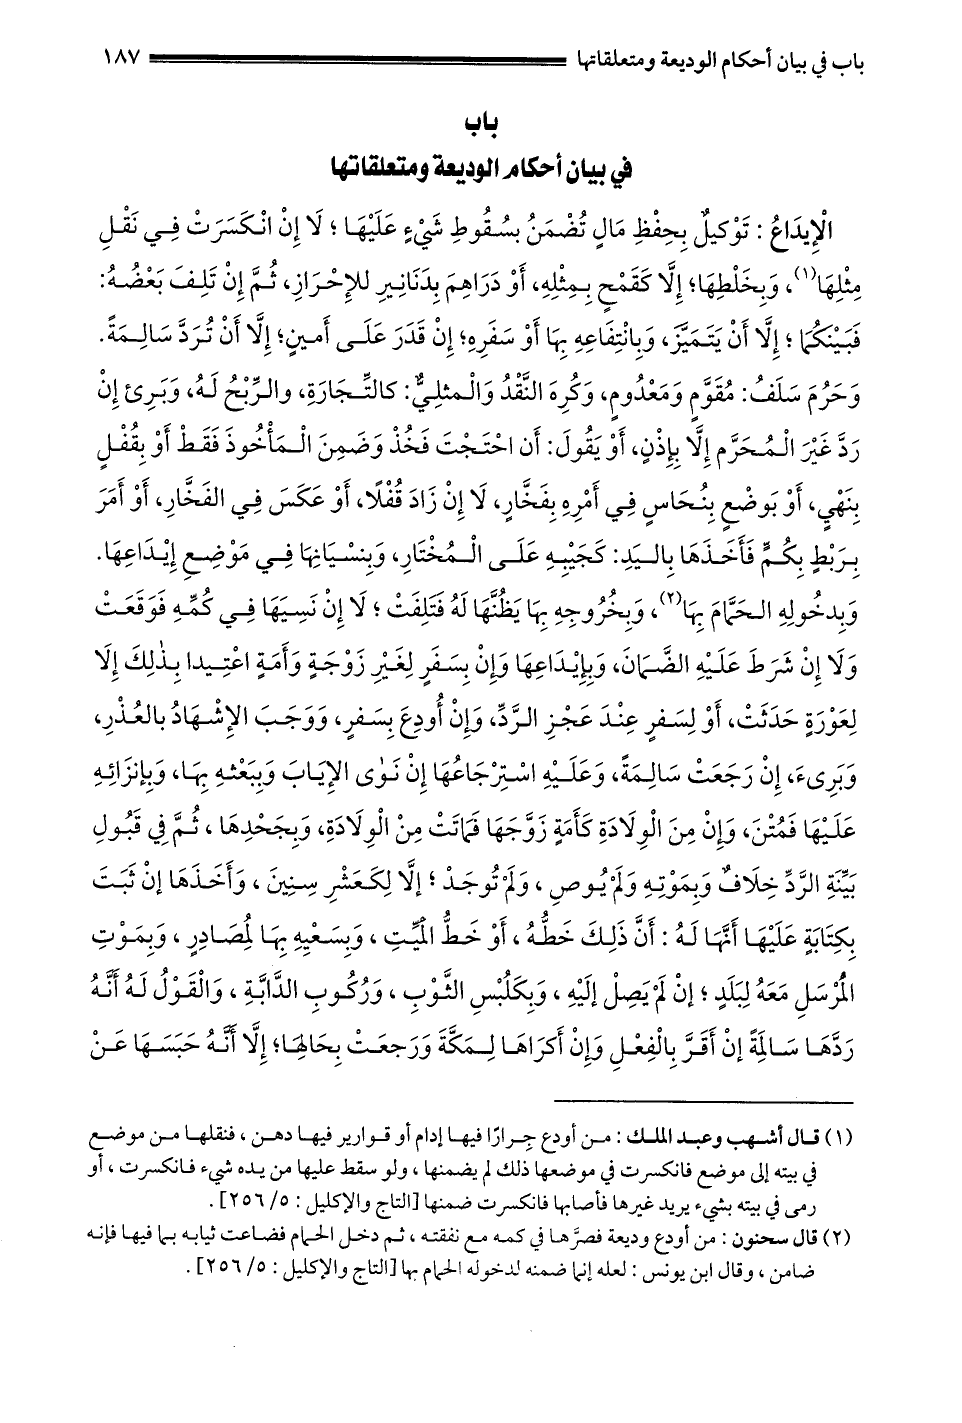 باب في بيان أحكام الوديعة ومتعلقاتها ١٨٧
باب
في بيان أحكام الوديعة ومتعلقاتها
الْإِيدَاعُ : تَوْكِيلٌ بِحِفْظِ مَالٍ تُضْمَنُ بِسُقُوطِ شَيْءٍ عَلَيْهَا ؛ لَا إِنْ انْكَسَرَتْ فِي نَقْلِ
مِثْلِهَا(١)، وَبِخَلْطِهَا؛ إِلَّا كَقَمْحٍ بِمِثْلِهِ، أَوْ دَرَاهِمَ بِدَنَانِيرِ للإِحْرازِ، ثُمَّ إِنْ تَلِفَ بَعْضُهُ:
فَبَيْنَكُمَا ؛ إِلَّا أَنْ يَتَمَيَّزَ، وَبِانْتِفَاعِهِ بِهَا أَوْ سَفَرِهِ؛ إِنْ قَدَرَ عَلَى أَمينٍ؛ إِلَّا أَنْ تُرَدَّ سَالِمَةً.
وَحَرُمَ سَلَفُ: مُقَوَّمٍ وَمَعْدُومٍ، وَكُرِهَ النَّقْدُ وَالْمثلِيُّ: كالتِّجَارَةِ، والرِّبْحُ لَهُ، وَبَرِئ إِنْ
رَدَّ غَيْرَ الْمُحَرَّمِ إِلَّا بِإِذْنٍ، أَوْ يَقُولَ: أَن احْتَجْتَ فَخُذْ وَضَمِنَ الْمَأْخُوذَ فَقَطْ أَوْ بِقُفْلٍ
بِنَهْيٍ، أَوْ بَوضْعٍ بِنُحَاسٍ فِي أَمْرِهِ بِفَخَّارٍ، لَا إِنْ زَادَ قُفْلًا، أَوْ عَكَسَ فِي الفَخَّارِ، أَوْ أَمَرَ
بِرَبْطٍ بِكُمٍّ فَأَخَذَهَا بِاليَدِ: كَجَيْبِهِ عَلَى الْمُخْتَارِ، وَبِنسْيَانِهَا فِي مَوْضِعِ إِيْدَاعِهَا.
وَبِدخُولِهِ الحَمَّامَ بِهَا(٢)، وَبِخُرُوجِهِ بِهَا يَظُنُّهَا لَهُ فَتَلِفَتْ ؛ لَا إِنْ نَسِيَهَا فِي كُمِّهِ فَوَقَعَتْ
وَلَا إِنْ شَرَطَ عَلَيْهِ الضَّمَانَ، وَبِإِيْدَاعِهَا وَإِنْ بِسَفَرٍ لِغَيْرِ زَوْجَةٍ وَأَمَةٍ اعْتِيدا بِذَلِكَ إِلَا
لِعَوْرَةٍ حَدَثَتْ، أَوْ لِسَفرٍ عِنْدَ عَجْزِ الرَّدِّ، وَإِنْ أُودِعَ بِسَفرٍ، وَوَجَبَ الإِشْهَادُ بالعُذْرِ،
وَبَرِىءَ، إِنْ رَجَعَتْ سَالِمَةً، وَعَلَيْهِ اسْتِرْجَاعُهَا إِنْ نَوَى الإِيَابَ وَبِبَعْثهِ بِهَا، وَبِإِنزَائِهِ
عَلَيْهَا فَمُتْنَ، وَإِنْ مِنَ الْوِلَادَةِ كَأَمَةٍ زَوَّجَهَا فَمَاتَتْ مِنْ الْوِلَادَةِ، وَبِجَحْدِهَا ، ثُمَّ فِي قَبُولِ
بَيِّنَةِ الرَّدِّ خِلَافٌ وَبِمَوْتِهِ وَلَمْ يُوصِ ، وَلَمْ تُوجَدْ ؛ إلَّا لِكَعَشْرِ سِنِينَ ، وَأَخَذَهَا إنْ ثَبَتَ
بِكِتَابَةٍ عَلَيْهَا أَنَّهَا لَهُ : أَنَّ ذَلِكَ خَطُّهُ ، أَوْ خَطُّ الْمَيِّتِ ، وَبِسَعْيِهِ بِهَا لِمُصَادِرٍ ، وَبِمَوْتِ
الْمُرْسَلِ مَعَهُ لِبَلَدٍ ؛ إنْ لَمْ يَصِلْ إلَيْهِ ، وَبِكَلُبْسِ الثَّوْبِ ، وَرُكُوبِ الدَّابَّةِ ، وَالْقَوْلُ لَهُ أَنَّهُ
رَدَّهَا سَالِمَةً إنْ أَقَرَّ بِالْفِعْلِ وَإِنْ أَكرَاهَا لِمَكَّةَ وَرَجَعتْ بِحَالِهَا؛ إلَّا أَنَّهُ حَبَسَهَا عَنْ
(١) قال أشهب وعبد الملك : من أودع جرارًا فيها إدام أو قوارير فيها دهن ، فنقلها من موضع
في بيته إلى موضع فانكسرت في موضعها ذلك لم يضمنها ، ولو سقط عليها من يده شيء فانكسرت ، أو
رمى في بيته بشيء يريد غيرها فأصابها فانكسرت ضمنها [التاج والإكليل : ٥/ ٢٥٦] .
(٢) قال سحنون : من أودع وديعة فصرَّها في كمه مع نفقته ، ثم دخل الحمام فضاعت ثيابه بما فيها فإنه
ضامن ، وقال ابن يونس : لعله إنما ضمنه لدخوله الحمام بها [التاج والإكليل : ٥/ ٢٥٦] .